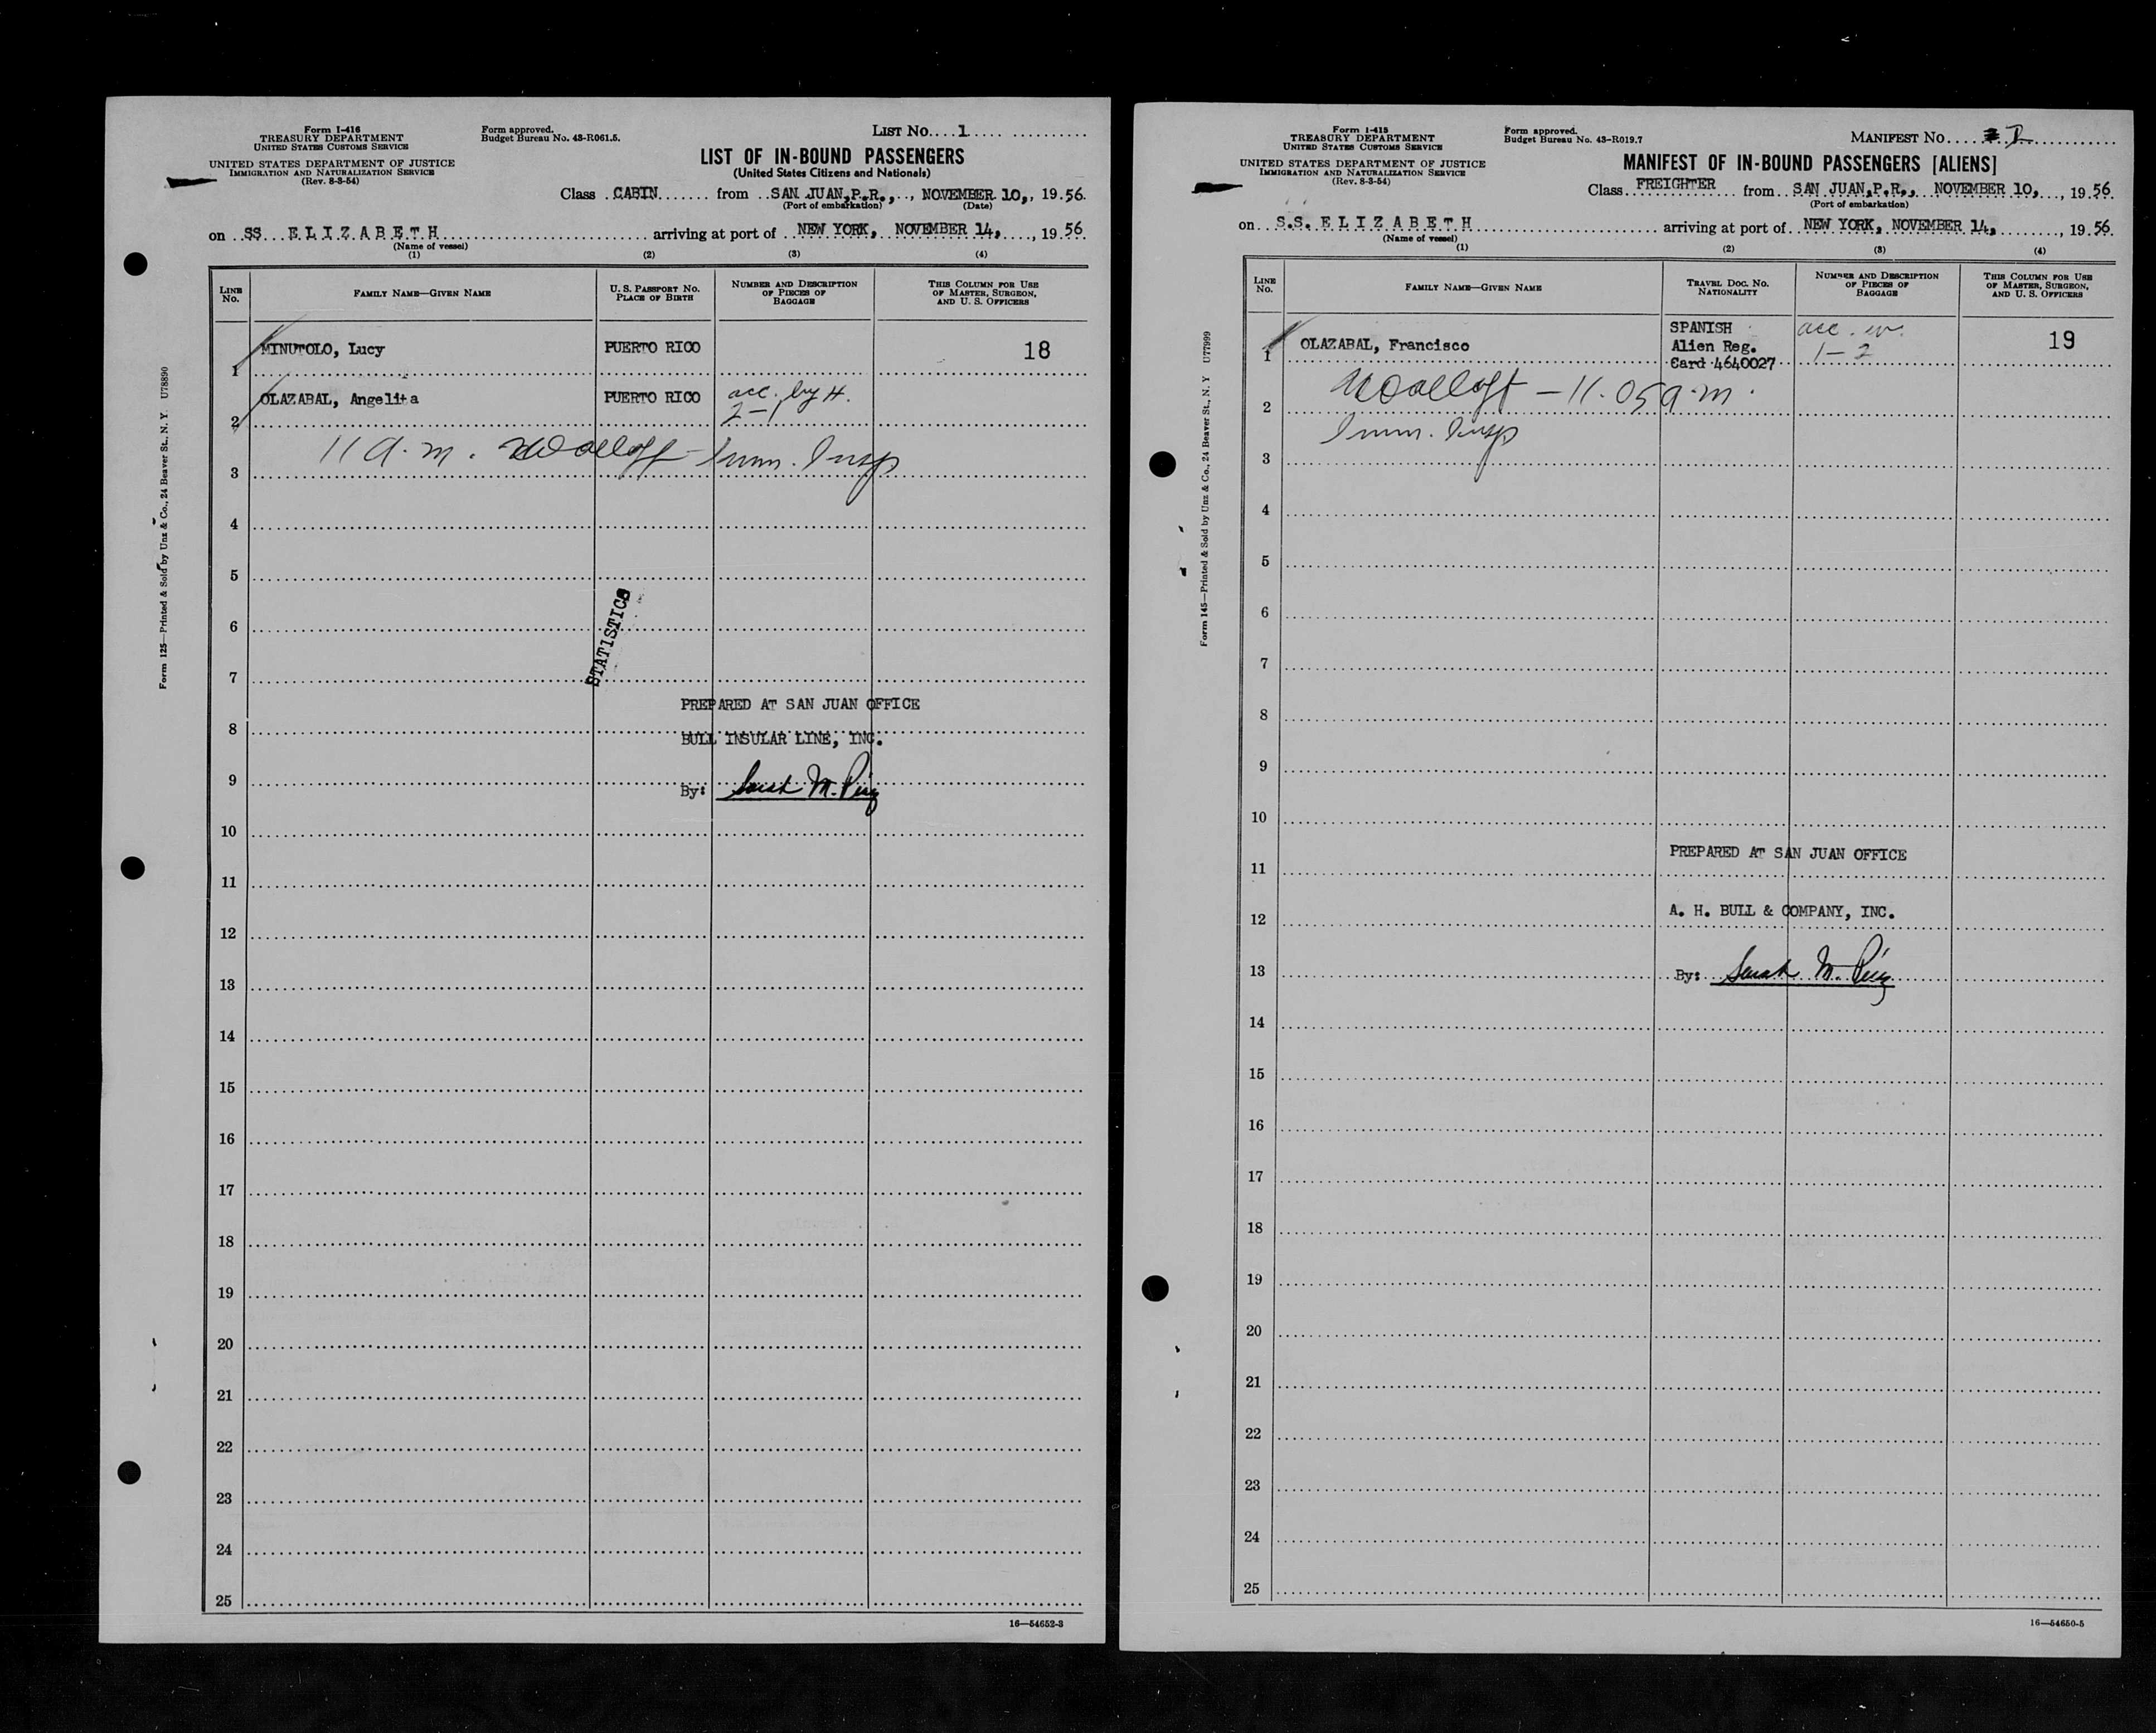 Form I-416
TREASURY DEPARTMENT
UNITED STATES CUSTOMS SERVICE
UNITED STATES DEPARTMENT OF JUSTICE
IMMIGRATION AND NATURALIZATION SERVICE
(Rev. 8-3-54)
Form approved.
Budget Bureau No. 43-R061.5.
LIST No. 1
LIST OF IN-BOUND PASSENGERS
(United States Citizens and Nationals)
Class CABIN from SAN JUAN, P.R., NOVEMBER 10, 1956.
(Port of embarkation) (Date)
on SS ELIZABETH arriving at port of NEW YORK, NOVEMBER 14, 1956
(Name of vessel)
(1) (2) (3) (4)
LINE No. FAMILY NAME—GIVEN NAME U. S. PASSPORT NO. PLACE OF BIRTH NUMBER AND DESCRIPTION OF PIECES OF BAGGAGE THIS COLUMN FOR USE OF MASTER, SURGEON, AND U. S. OFFICERS
1 MINUTOLO, Lucy PUERTO RICO 18
2 OLAZABAL, Angelita PUERTO RICO acc. by H. 2-1
3 11 a.m. Imm. Insp
4
5
6
STATISTICS
7
PREPARED AT SAN JUAN OFFICE
8
BULL INSULAR LINE, INC.
9 By: Sarah M.
10
11
12
13
14
15
16
17
18
19
20
21
22
23
24
25
16—54652-3
Form 125—Printed & Sold by Unz & Co., 24 Beaver St., N. Y. U78890
Form I-415
TREASURY DEPARTMENT
UNITED STATES CUSTOMS SERVICE
UNITED STATES DEPARTMENT OF JUSTICE
IMMIGRATION AND NATURALIZATION SERVICE
(Rev. 8-3-54)
Form approved.
Budget Bureau No. 43-R019.7
MANIFEST No.
MANIFEST OF IN-BOUND PASSENGERS [ALIENS]
Class FREIGHTER from SAN JUAN, P.R., NOVEMBER 10, 1956
(Port of embarkation)
on S.S. ELIZABETH arriving at port of NEW YORK, NOVEMBER 14, 1956.
(Name of vessel)
(1) (2) (3) (4)
LINE No. FAMILY NAME—GIVEN NAME TRAVEL DOC. NO. NATIONALITY NUMBER AND DESCRIPTION OF PIECES OF BAGGAGE THIS COLUMN FOR USE OF MASTER, SURGEON, AND U. S. OFFICERS
1 OLAZABAL, Francisco SPANISH Alien Reg. Card 4640027 acc. w. 1-2 19
2 - 11.05 a.m.
Imm. Insp
3
4
5
6
7
8
9
10
PREPARED AT SAN JUAN OFFICE
11
12 A. H. BULL & COMPANY, INC.
13 By: Sarah M.
14
15
16
17
18
19
20
21
22
23
24
25
16—54650-5
Form 145—Printed & Sold by Unz & Co., 24 Beaver St., N. Y. U77999